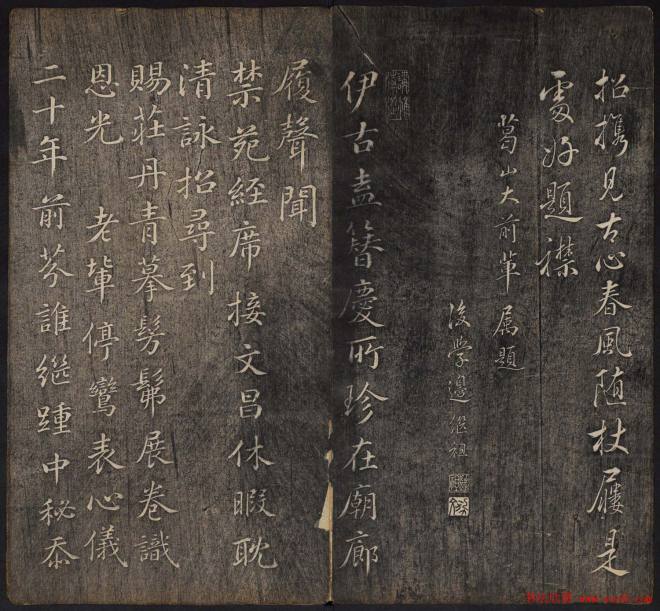 招攜見古心春風随杖屨是
處好題襟
葛山大前輩属題
後學邊繼祖
伊古盍簪慶所珍在廟廊
履聲聞
禁苑經席接文昌休暇耽
清詠招尋到
賜莊丹青摹髣髴展卷識
恩光 老輩停鸞表心儀
二十年前芬誰繼踵中秘忝